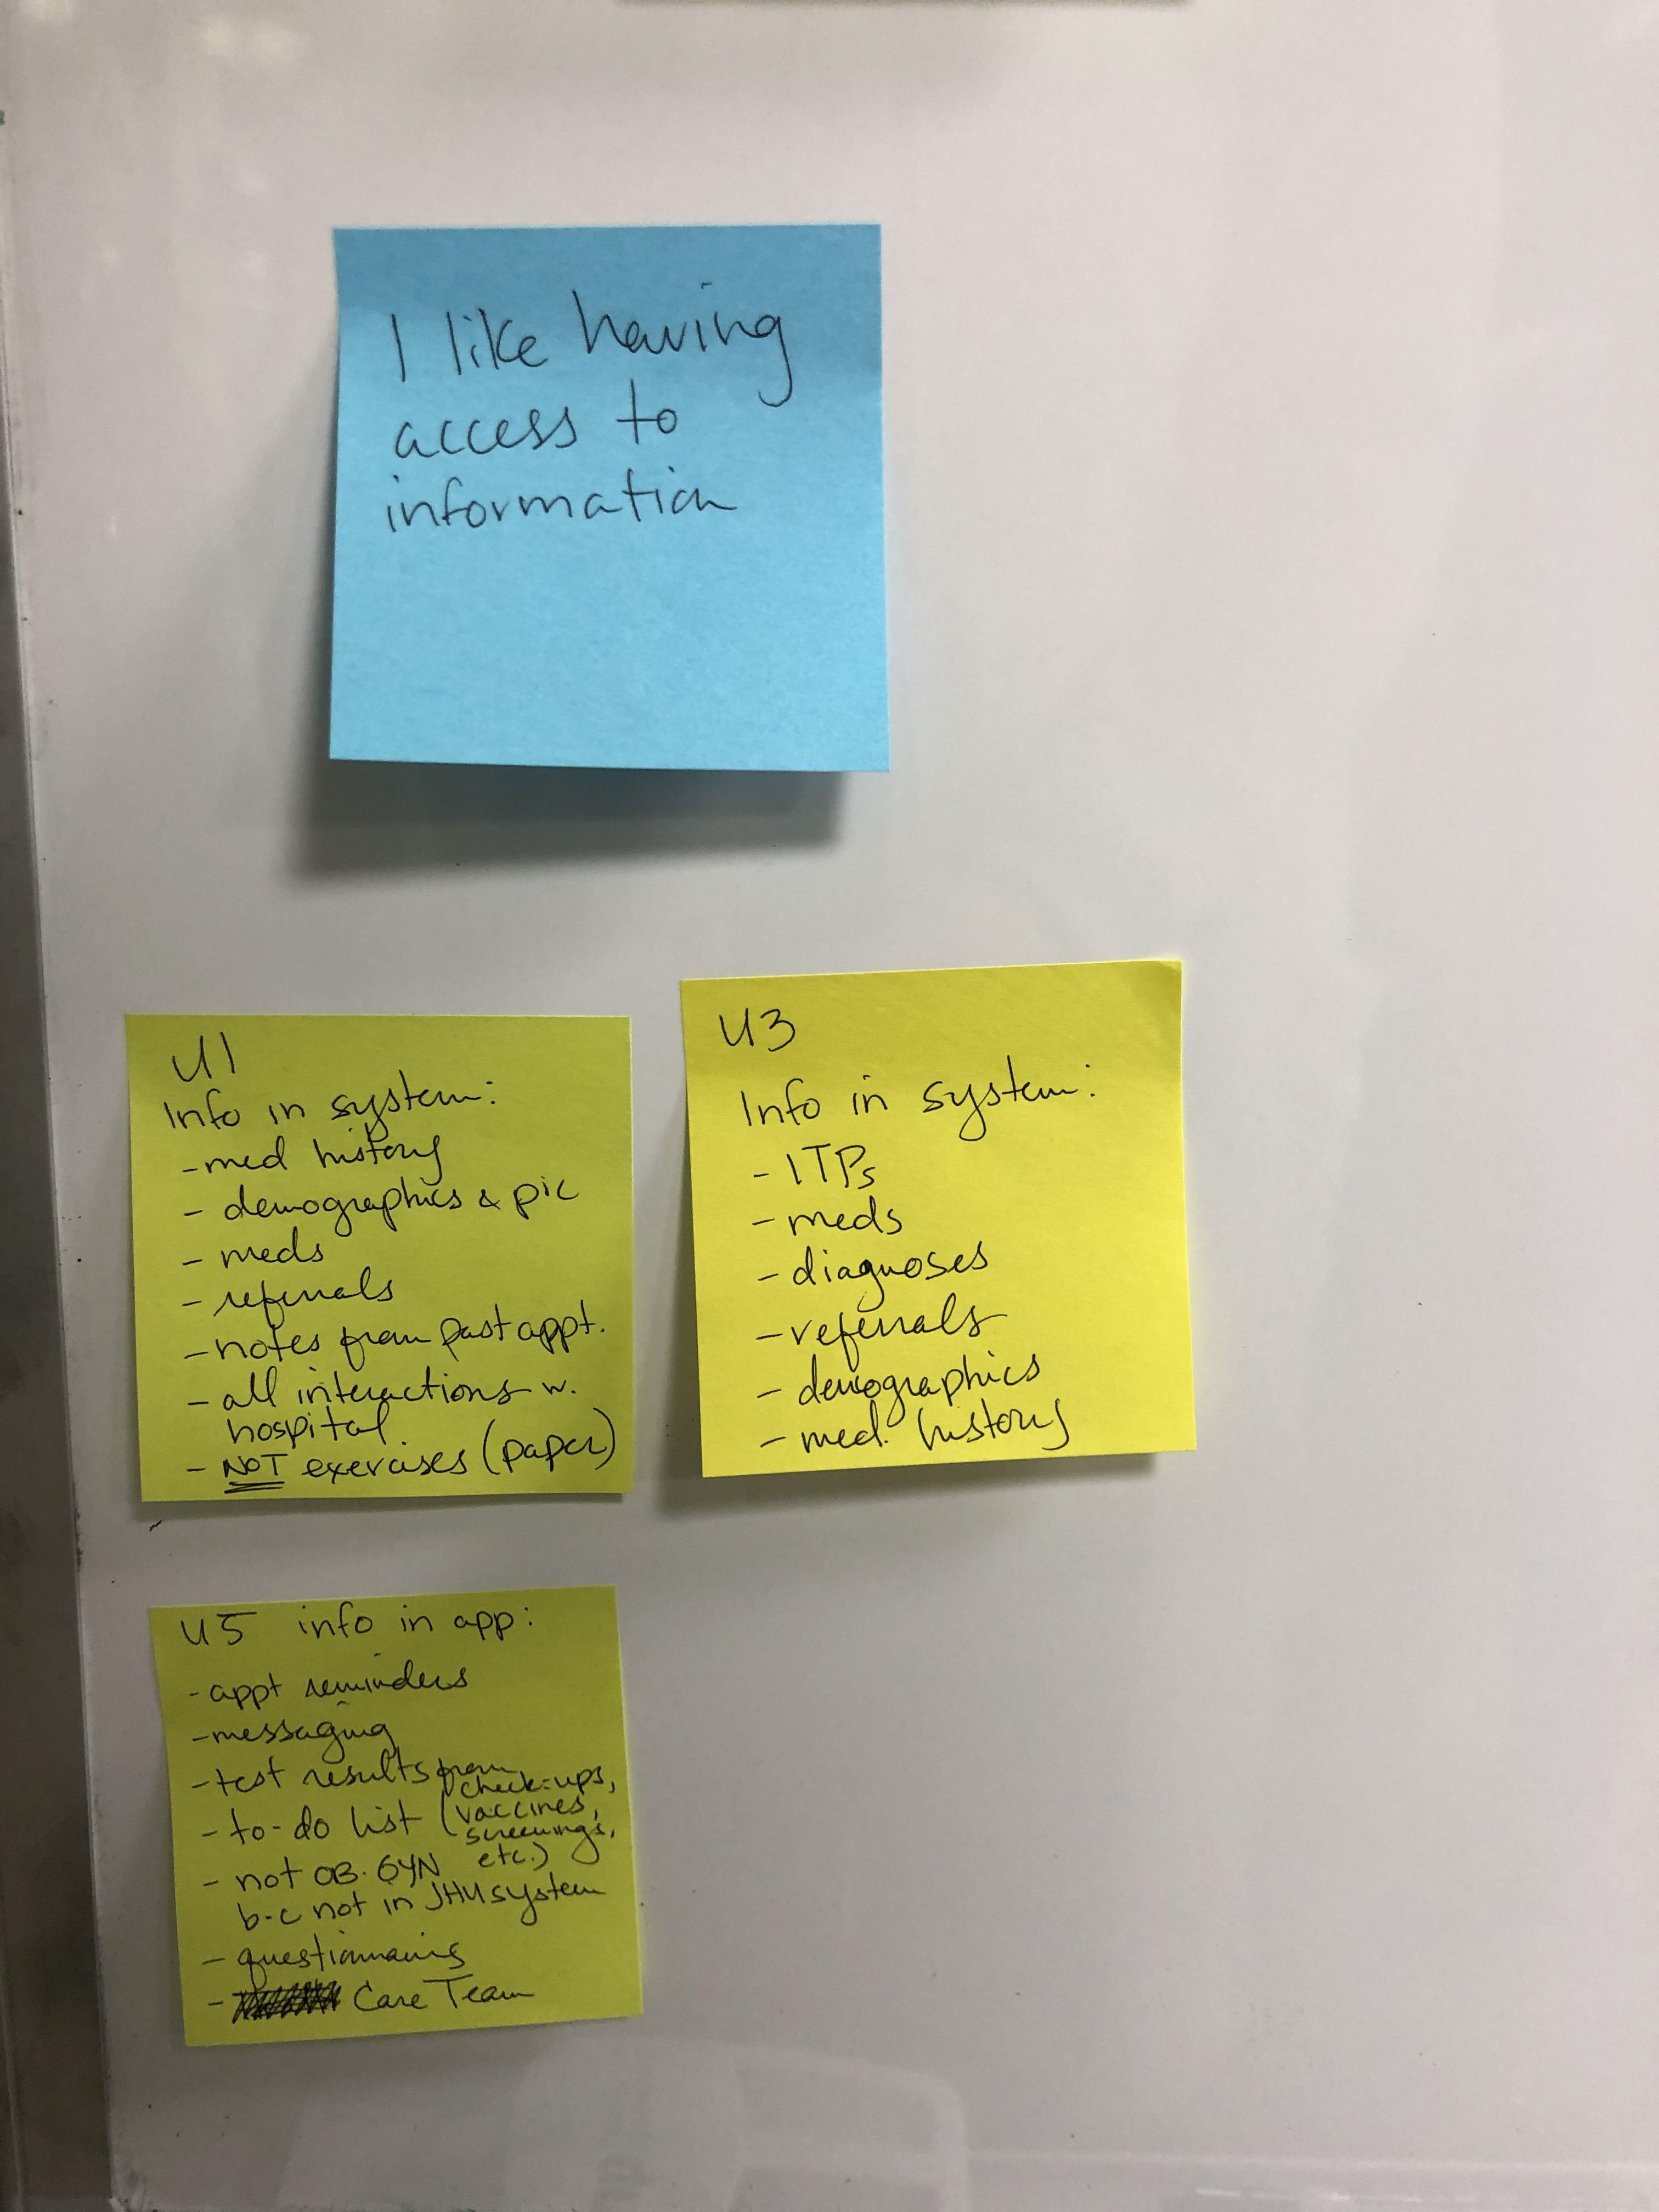 I like having
access to
information
U1
Info in system:
- med history
- demographics & pic
- meds
- referrals
- notes from past appt.
- all interactions w.
hospital
- NOT exercises (paper)
U3
Info in system:
- ITPs
- meds
- diagnoses
- referrals
- demographics
- med. history
U5 info in app:
- appt reminders
- messaging
- test results from
check-ups,
- to-do list (vaccines,
screenings,
etc.)
- not OB-GYN
b-c not in JHU system
- questionnaires
- Care Team